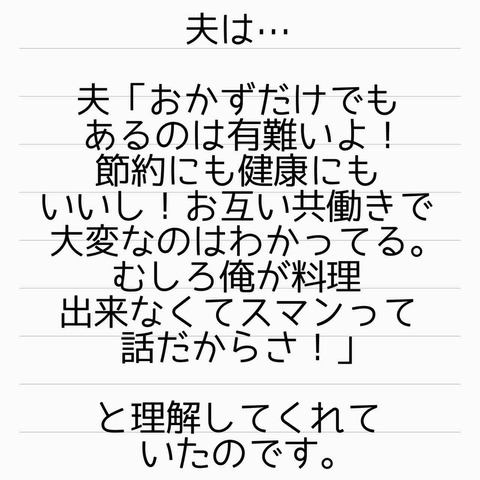 夫は…
夫「おかずだけでも
あるのは有難いよ！
節約にも健康にも
いいし！お互い共働きで
大変なのはわかってる。
むしろ俺が料理
出来なくてスマンって
話だからさ！」
と理解してくれて
いたのです。